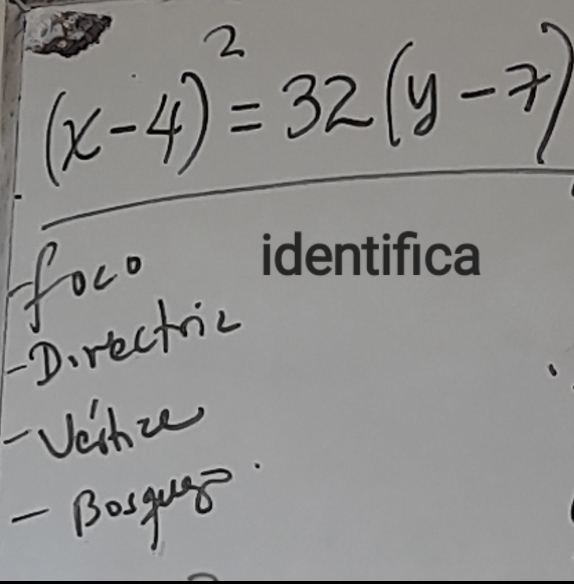 (x-4)² = 32(y-7)
identifica
-foco
-Directriz
-Vértice
-Bosquejo.